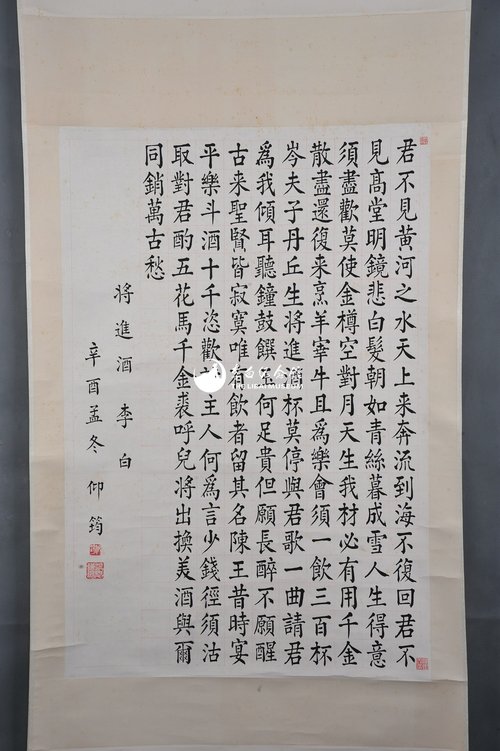 君不見黃河之水天上来奔流到海不復回君不
見高堂明鏡悲白髮朝如青絲暮成雪人生得意
須盡歡莫使金樽空對月天生我材必有用千金
散盡還復来烹羊宰牛且爲樂會須一飲三百杯
岑夫子丹丘生將進酒杯莫停與君歌一曲請君
爲我傾耳聽鐘鼓饌玉何足貴但願長醉不願醒
古来聖賢皆寂寞唯有飲者留其名陳王昔時宴
平樂斗酒十千恣歡主人何爲言少錢徑須沽
取對君酌五花馬千金裘呼兒將出換美酒與爾
同銷萬古愁
將進酒 李白
辛酉孟冬 仰筠
THE LIBAI MUSEUM